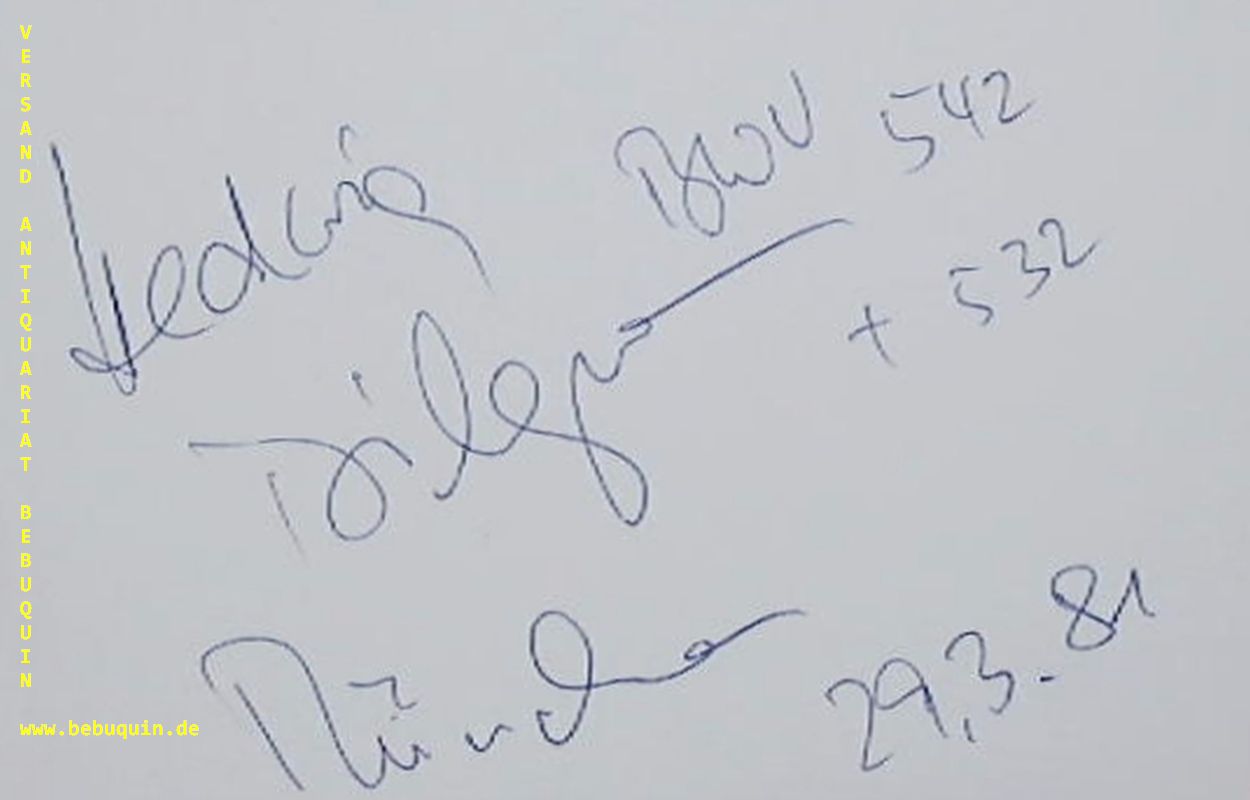 VERSAND ANTIQUARIAT BEBUQUIN
www.bebuquin.de
Hedwig BWV 542
Bilgram + 532
München 29.3.81